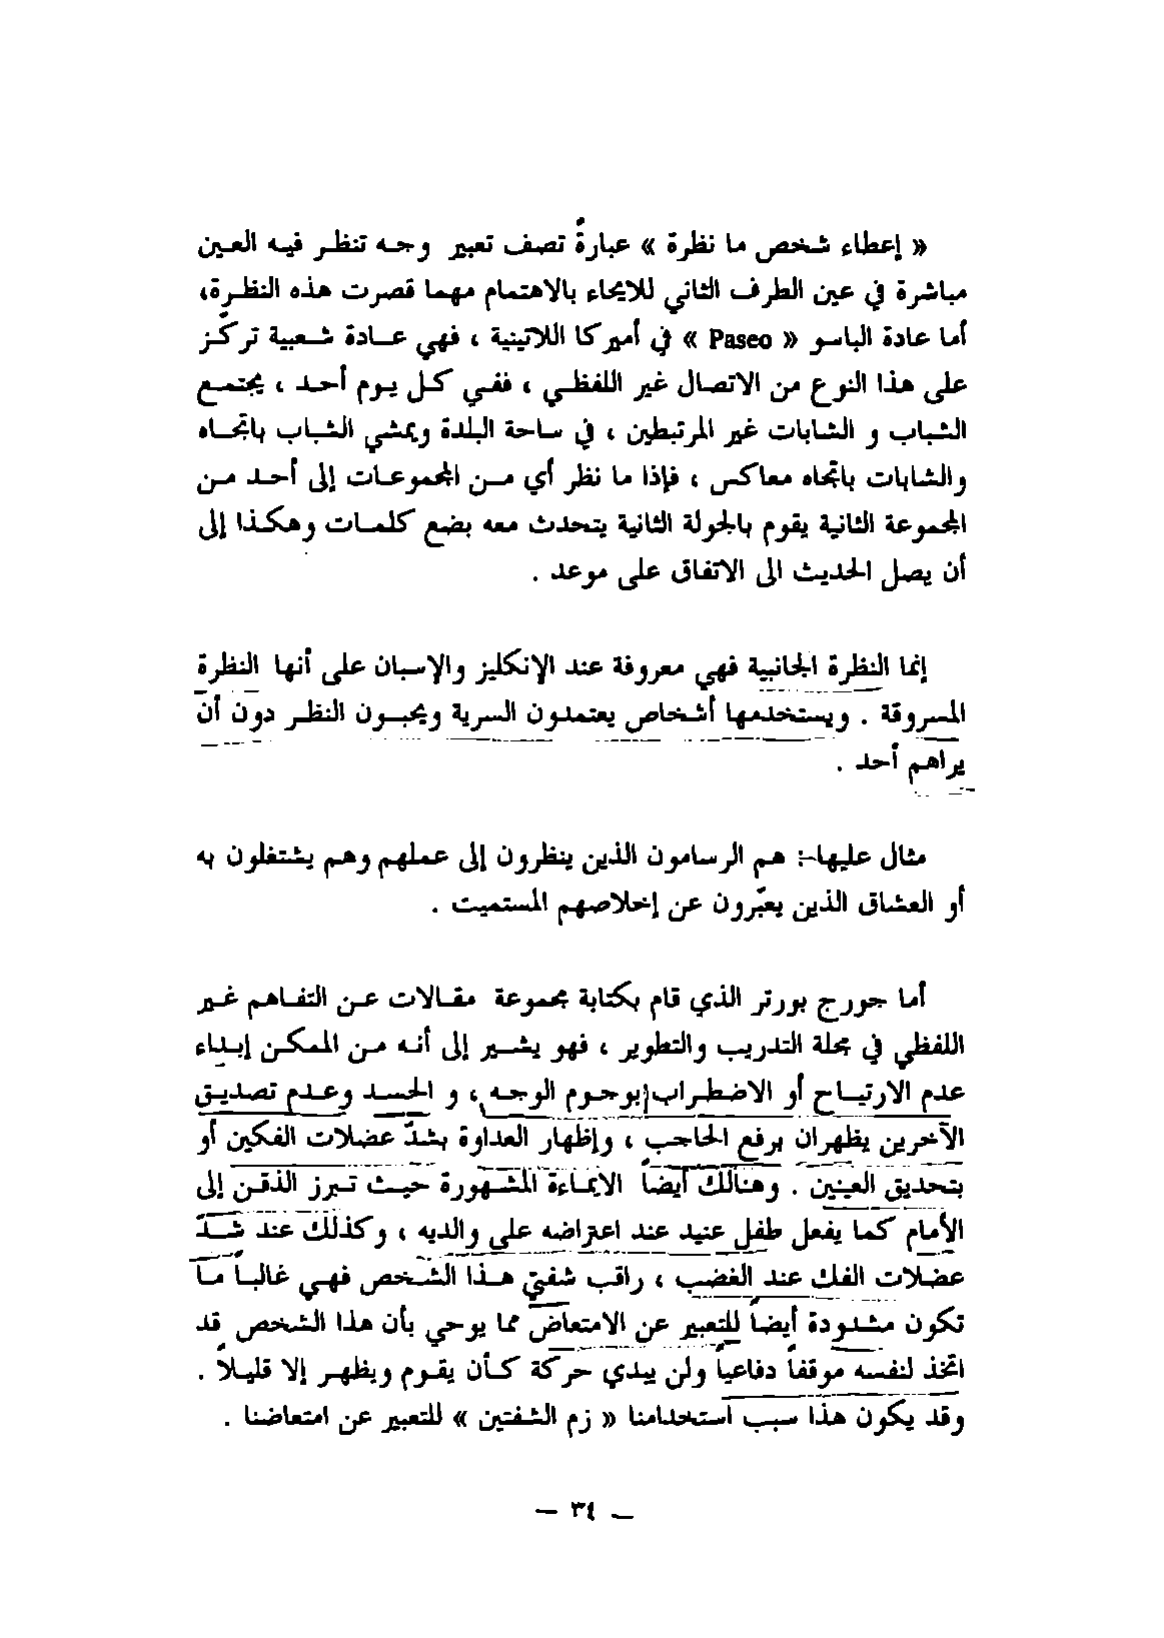 « إعطاء شخص ما نظرة » عبارةً تصف تعبير وجه تنظر فيه العين
مباشرة في عين الطرف الثاني للايحاء بالاهتمام مهما قصرت هذه النظرة،
أما عادة الباسو « Paseo » في أميركا اللاتينية ، فهي عادة شعبية تركّز
على هذا النوع من الاتصال غير اللفظي ، ففي كل يوم أحد ، يجتمع
الشباب و الشابات غير المرتبطين ، في ساحة البلدة ويمشي الشباب باتجاه
والشابات باتجاه معاكس ، فإذا ما نظر أي من المجموعات إلى أحد من
المجموعة الثانية يقوم بالجولة الثانية يتحدث معه بضع كلمات وهكذا إلى
أن يصل الحديث الى الاتفاق على موعد .
إنما النظرة الجانبية فهي معروفة عند الإنكليز والإسبان على أنها النظرة
المسروقة . ويستخدمها أشخاص يعتمدون السرية ويحبون النظر دون أن
يراهم أحد .
مثال عليها : هم الرسامون الذين ينظرون إلى عملهم وهم يشتغلون به
أو العشاق الذين يعبّرون عن إخلاصهم المستميت .
أما جورج بورتر الذي قام بكتابة مجموعة مقالات عن التفاهم غير
اللفظي في مجلة التدريب والتطوير ، فهو يشير إلى أنه من الممكن إبداء
عدم الارتياح أو الاضطراب بوجوم الوجه ، و الحسد وعدم تصديق
الآخرين يظهران برفع الحاجب ، وإظهار العداوة بشدّ عضلات الفكين أو
بتحديق العينين . وهنالك أيضاً الايماءة المشهورة حيث تبرز الذقن إلى
الأمام كما يفعل طفل عنيد عند اعتراضه على والديه ، وكذلك عند شدّ
عضلات الفك عند الغضب ، راقب شفتي هذا الشخص فهي غالباً ما
تكون مشدودة أيضاً للتعبير عن الامتعاض مما يوحي بأن هذا الشخص قد
اتخذ لنفسه موقفاً دفاعياً ولن يبدي حركة كأن يقوم ويظهر إلا قليلاً .
وقد يكون هذا سبب استخدامنا « زم الشفتين » للتعبير عن امتعاضنا .
— ٣٤ —